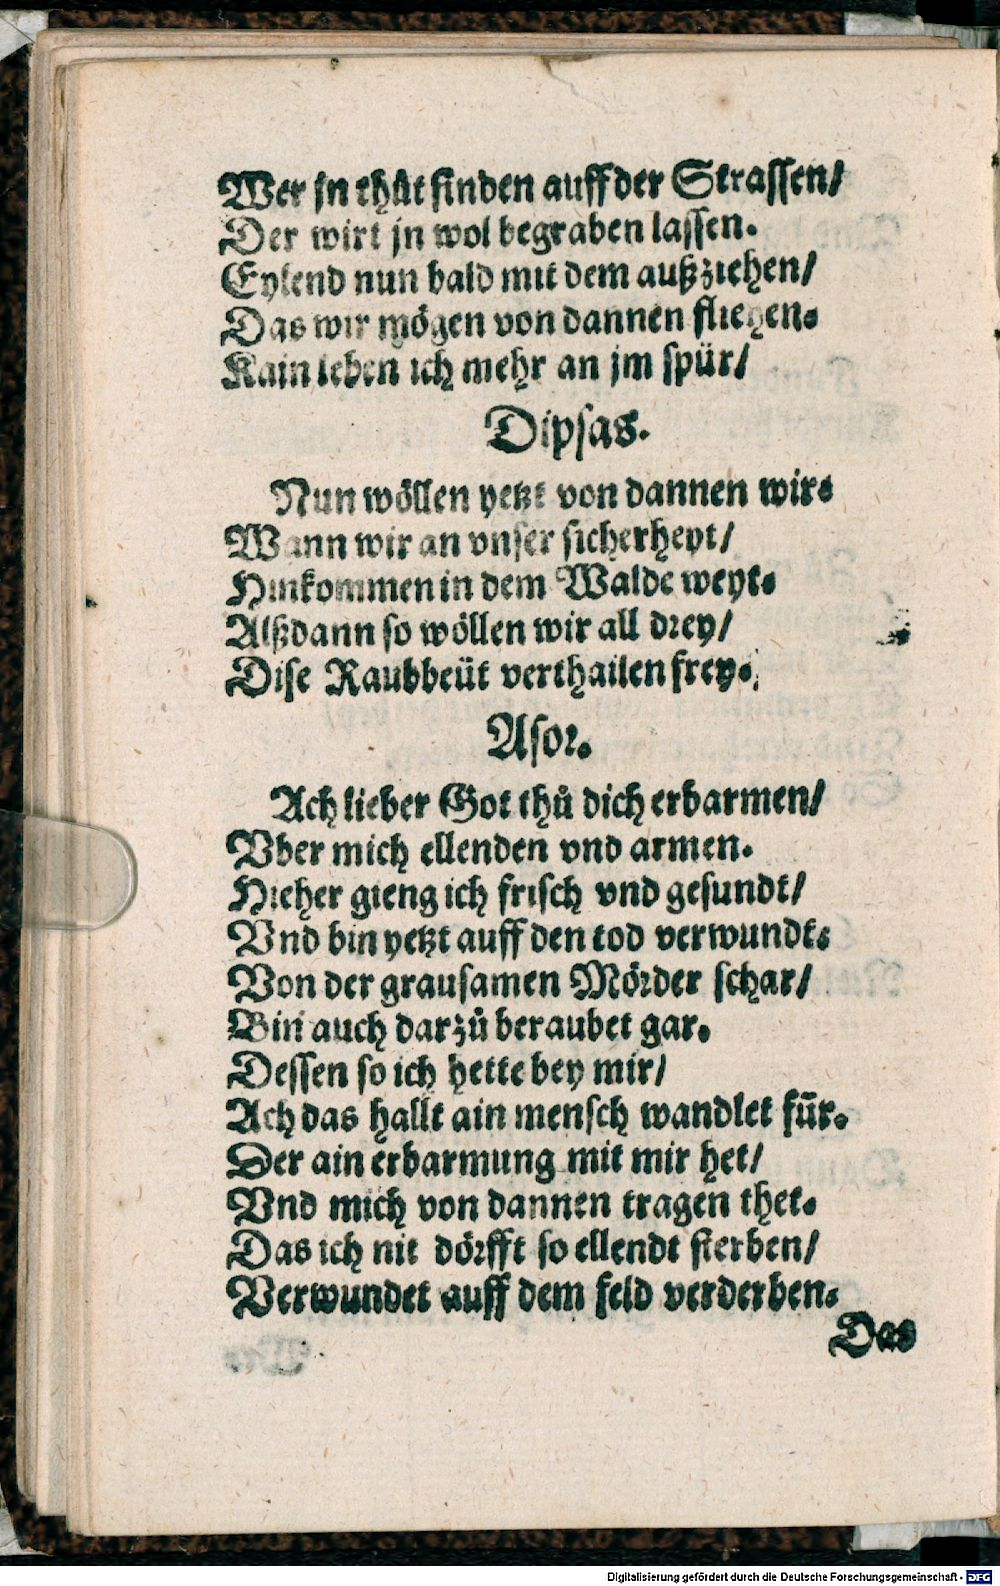 Wer jn thůt finden auff der Strassen/
Der wirt jn wol begraben lassen.
Eylend nun bald mit dem außziehen/
Das wir mögen von dannen fliehen.
Kain leben ich mehr an jm spür/
Dipsas.
Nun wöllen yetzt von dannen wir.
Wann wir an vnser sicherheyt/
Hinkommen in dem Walde weyt.
Alßdann so wöllen wir all drey/
Dise Raubbeüt verthailen frey.
Asor.
Ach lieber Got thů dich erbarmen/
Vber mich ellenden vnd armen.
Hieher gieng ich frisch vnd gesundt/
Vnd bin yetzt auff den tod verwundt.
Von der grausamen Mörder schar/
Bin auch darzů beraubet gar.
Dessen so ich hette bey mir/
Ach das hallt ain mensch wandlet für.
Der ain erbarmung mit mir het/
Vnd mich von dannen tragen thet.
Das ich nit dörfft so ellendt sterben/
Verwundet auff dem feld verderben.
Das
Digitalisierung gefördert durch die Deutsche Forschungsgemeinschaft - DFG